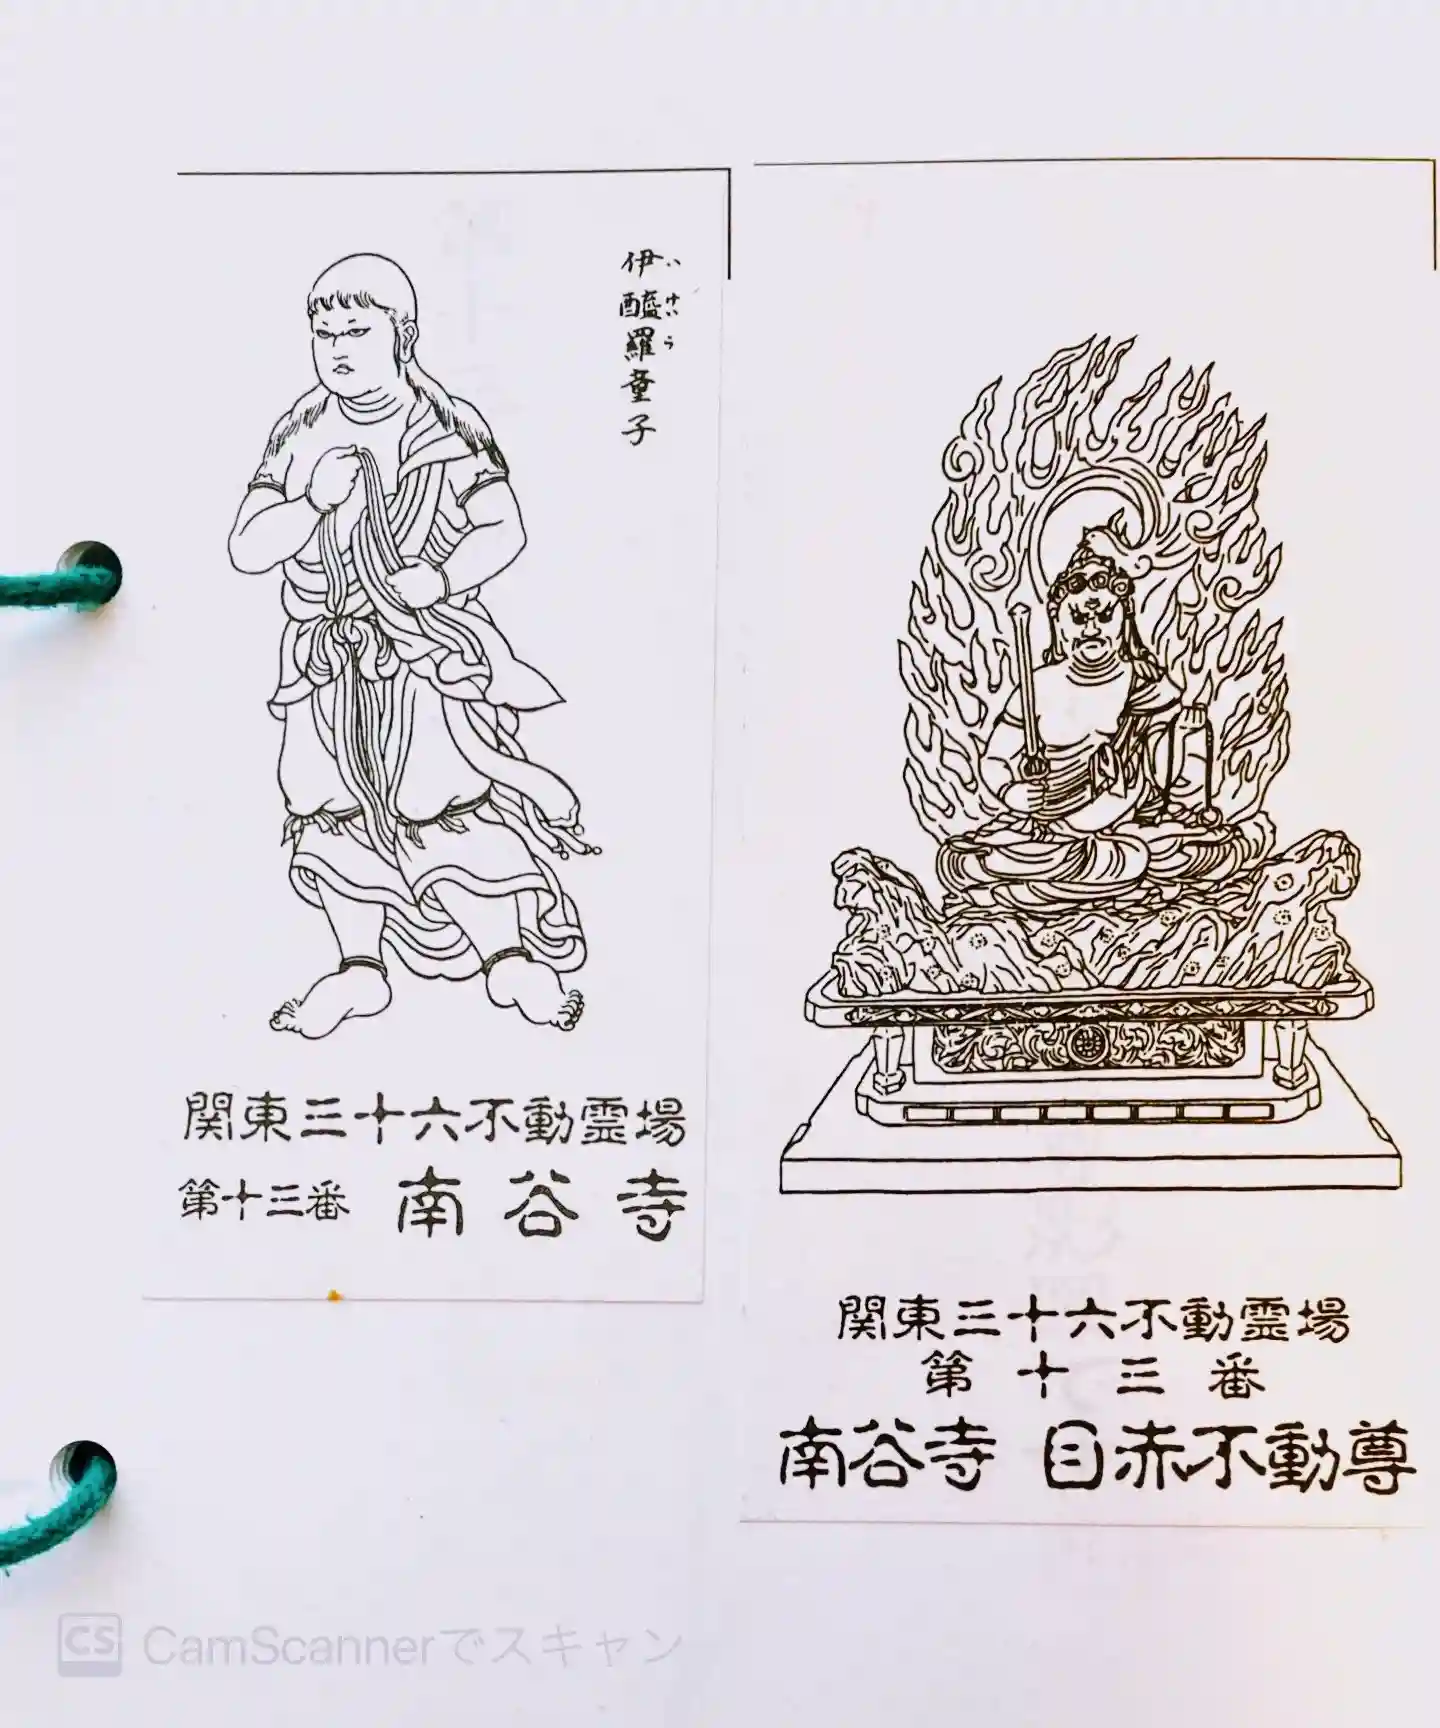 伊醯羅童子
いけいら
関東三十六不動霊場
第十三番 南谷寺
関東三十六不動霊場
第十三番
南谷寺 目赤不動尊
CS CamScannerでスキャン